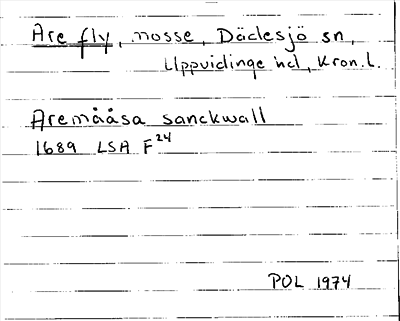 Are fly, mosse, Dädesjö sn,
Uppvidinge hd, Kron. l.
Aremååsa sanckwall
1689 LSA F24
POL 1974